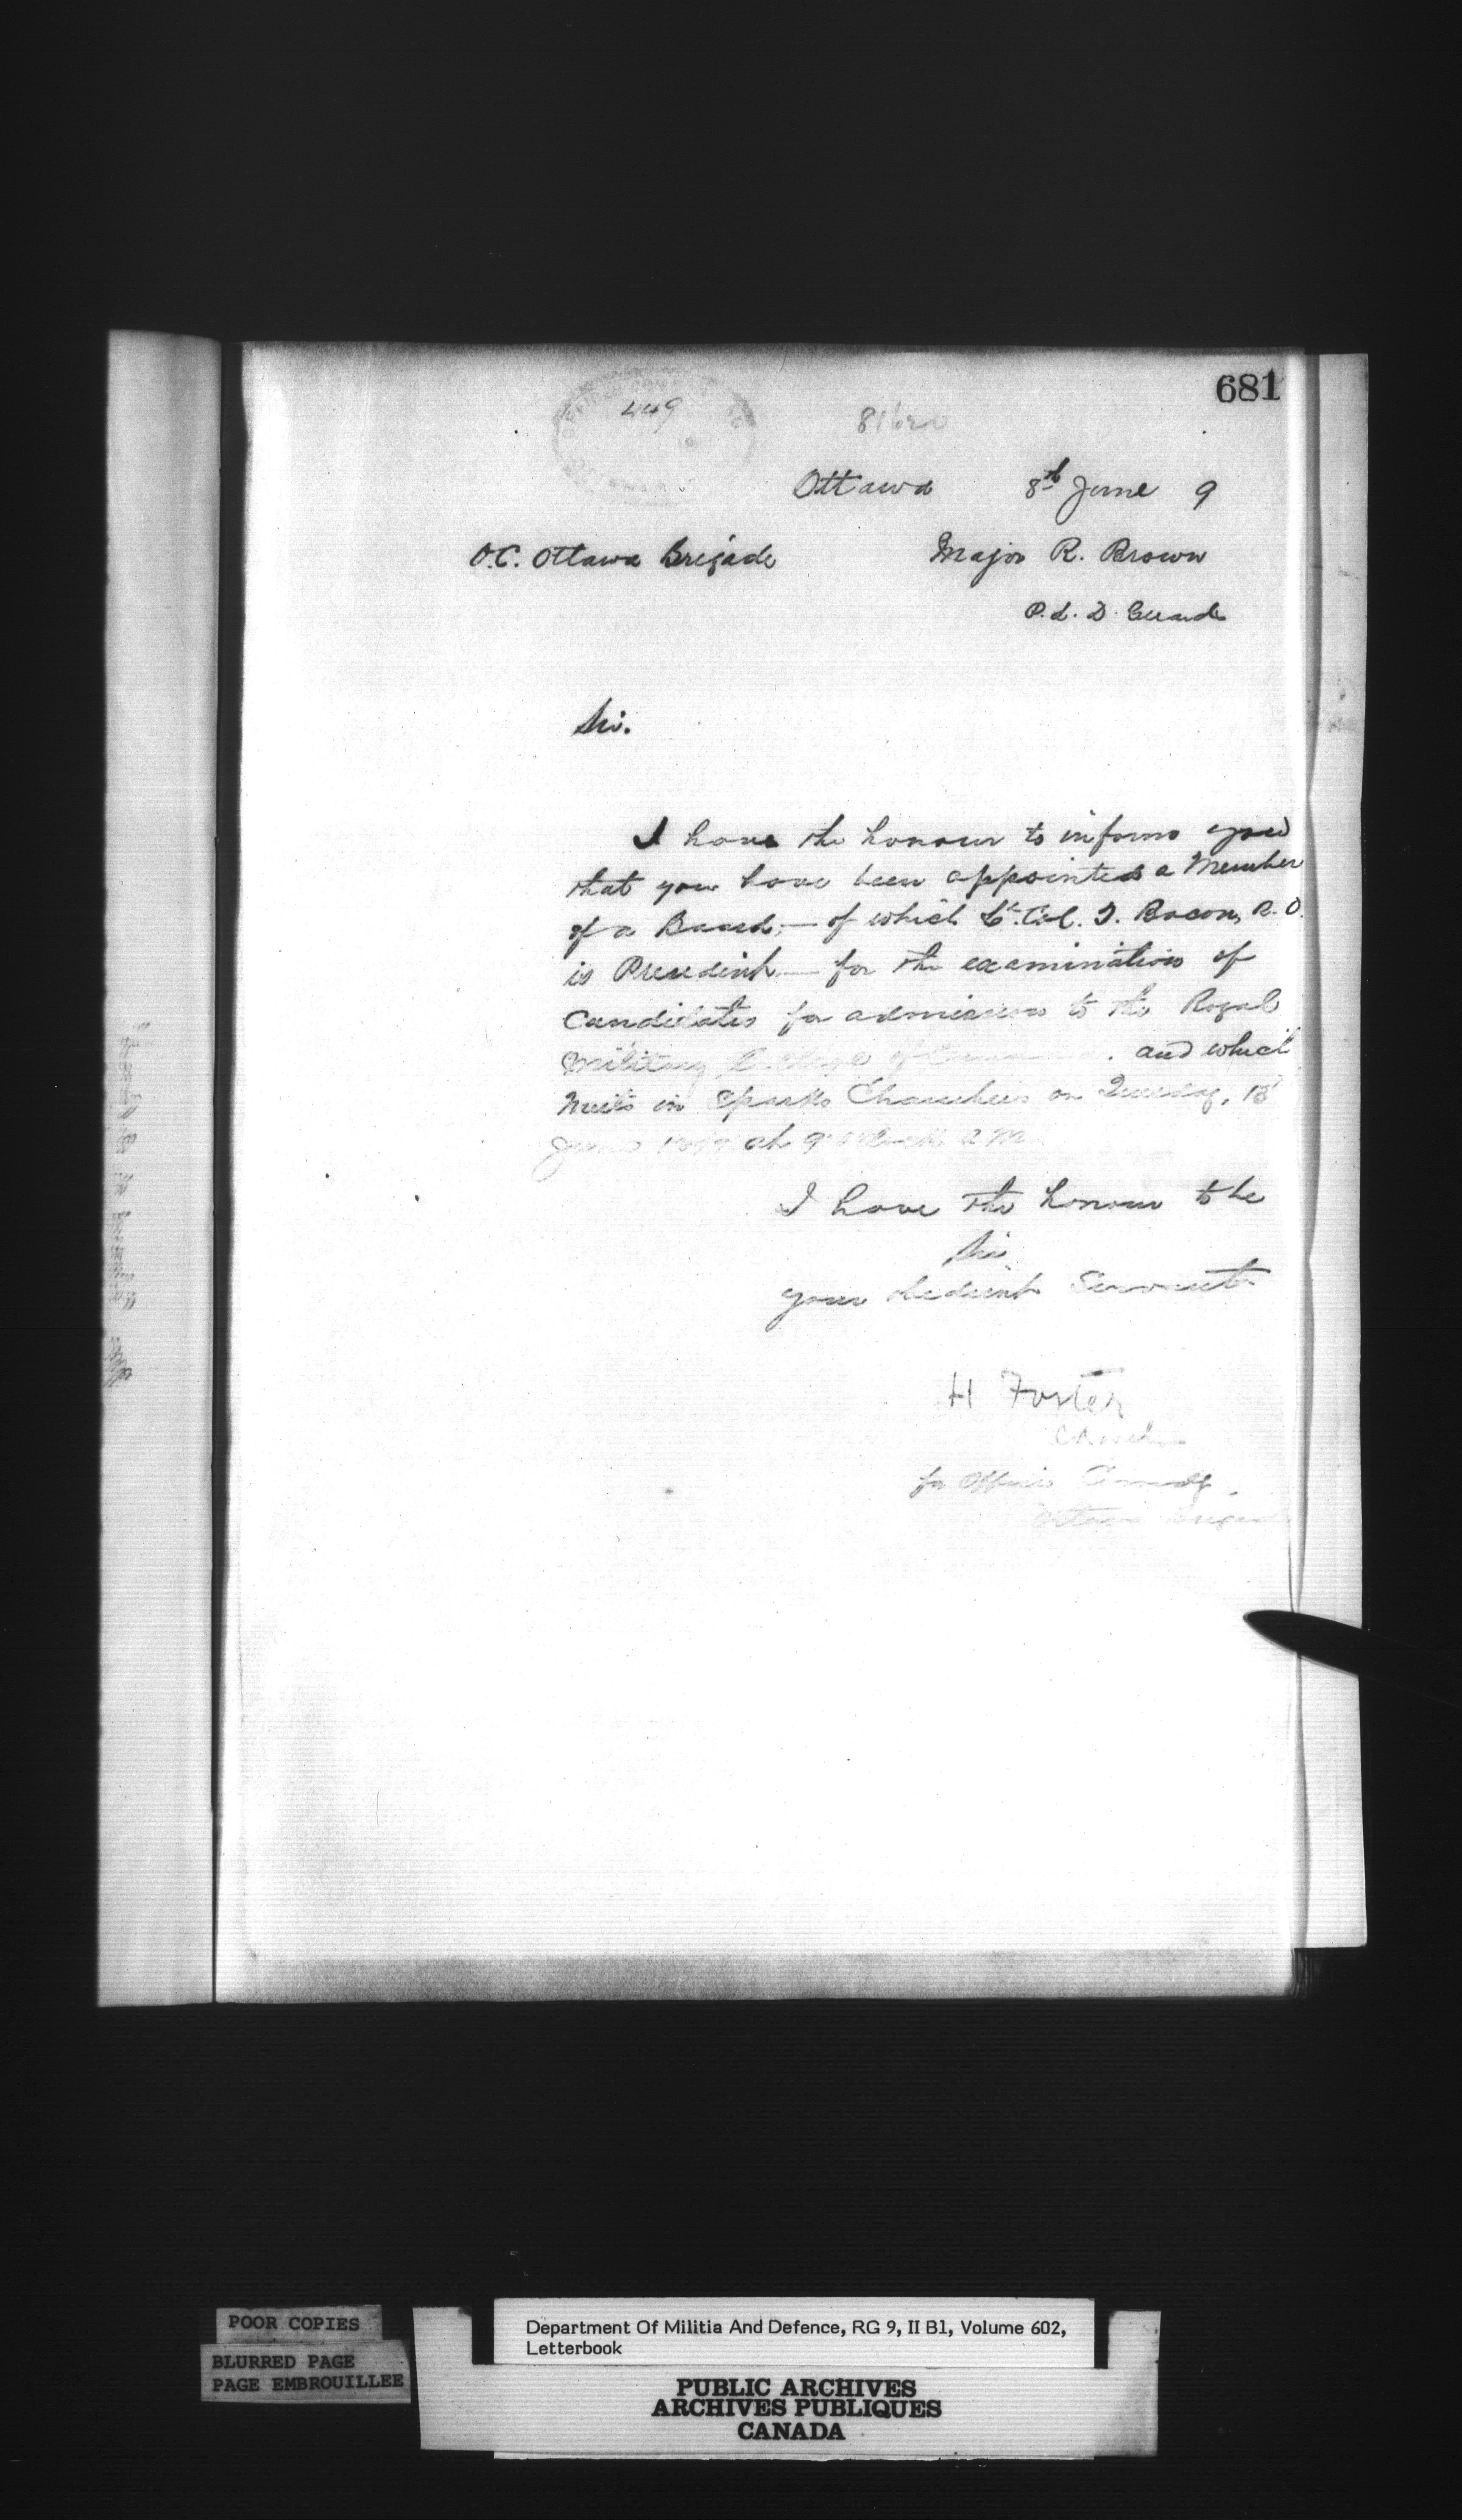 681
449
Ottawa 8th June 9
O.C. Ottawa Brigade
Major R. Brown
P.L.D. Guards
Sir.
I have the honour to inform you
that you have been appointed a Member
of a Board,— of which Lt. Col. T. Bacon, R.O.
is President — for the examination of
Candidates for admission to the Royal
Military College of Canada. and which
meets in Sparks Chambers on Tuesday, 13
June 1899 at 9 o'clock a.m.
I have the honour to be
Sir
your obedient Servant
H Foster
for Officer Comdg.
Ottawa Brigade
POOR COPIES
BLURRED PAGE
PAGE EMBROUILLEE
Department Of Militia And Defence, RG 9, II B1, Volume 602,
Letterbook
PUBLIC ARCHIVES
ARCHIVES PUBLIQUES
CANADA